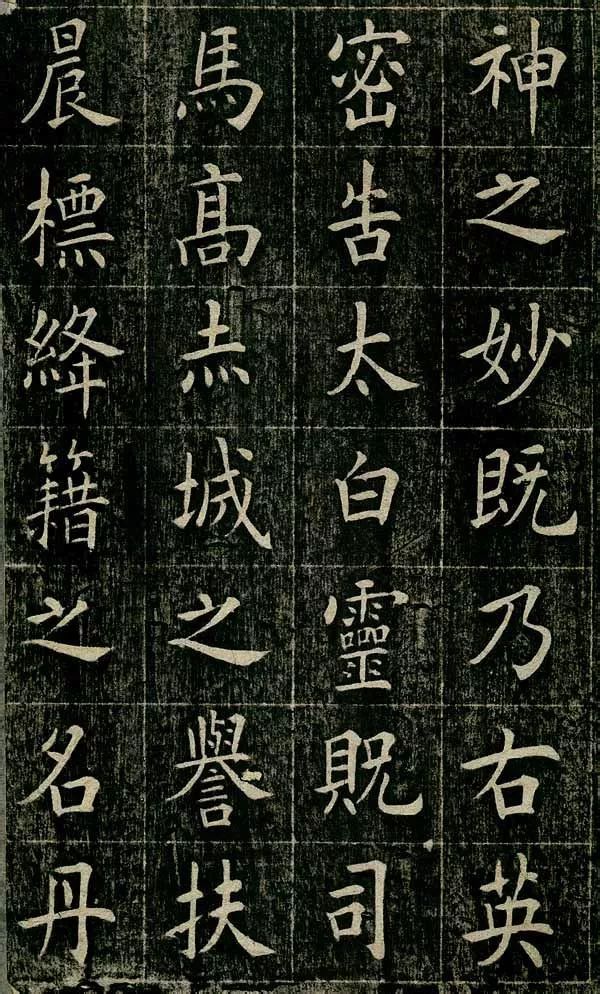 神之妙既乃右英
密告太白靈貺司
馬高赤城之譽扶
晨標絳籍之名丹